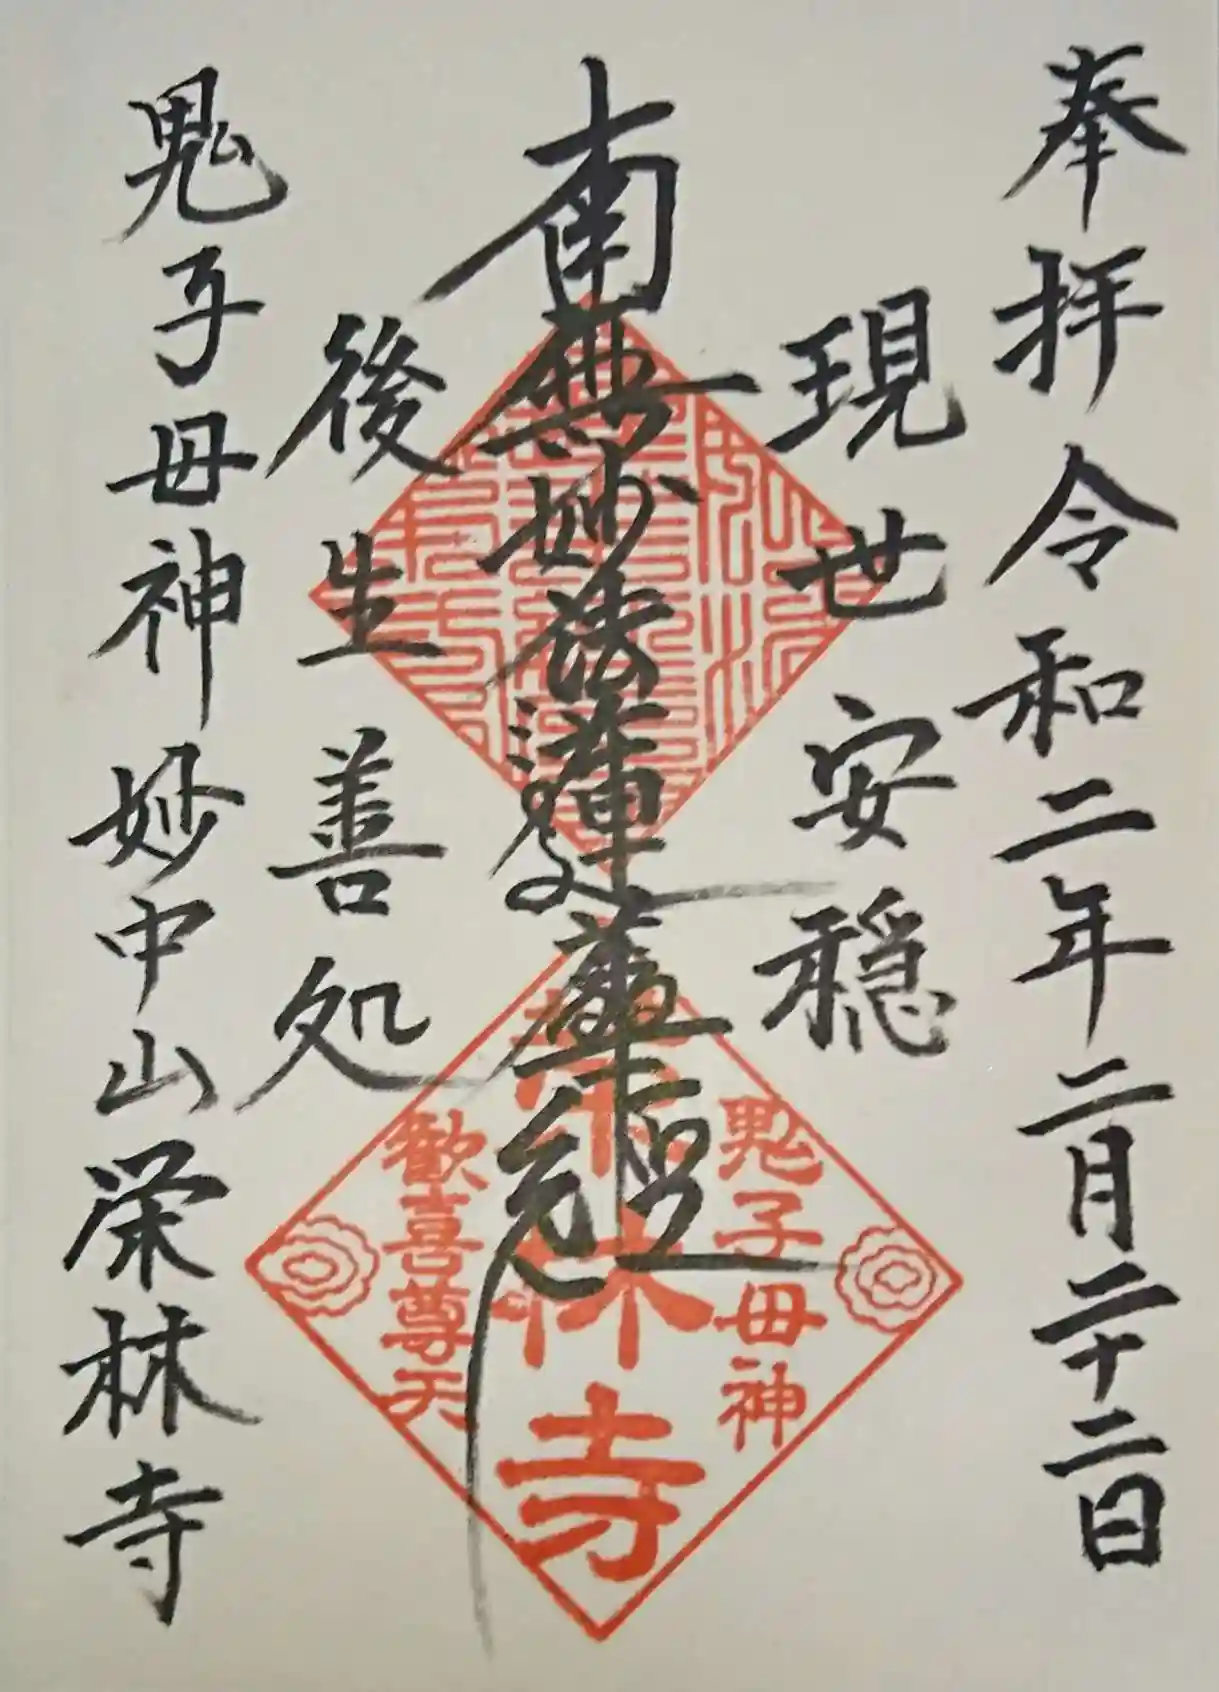 奉拝 令和二年二月二十二日
現世安穏
南無妙法蓮華経
後生善処
鬼子母神 妙中山栄林寺
鬼子母神
栄林寺
歓喜尊天